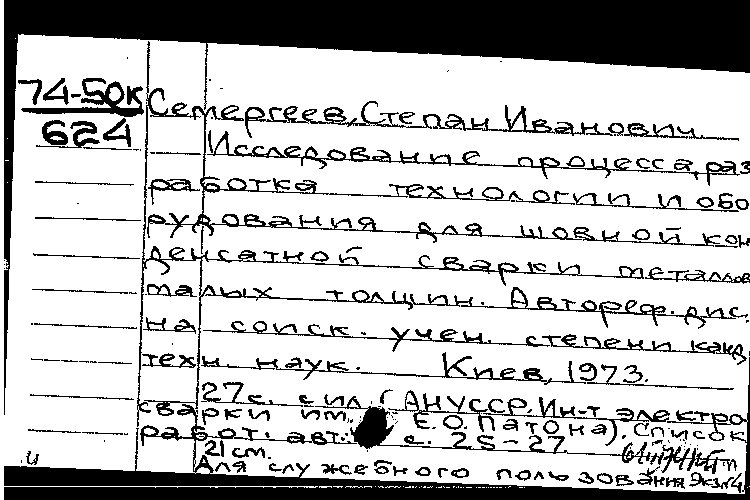 74-50к
624
Семергеев, Степан Иванович.
Исследование процесса, раз
работка технологии и обо
рудования для шовной кон
денсатной сварки металлов
малых толщин. Автореф. дис.
на соиск. учен. степени канд
техн. наук. Киев, 1973.
27с. с ил. (АНУССР. Ин-т электро
сварки им. Е.О. Патона). Список
работ. авт. с. 25-27.
21 см.
Для служебного пользования Экз.
и